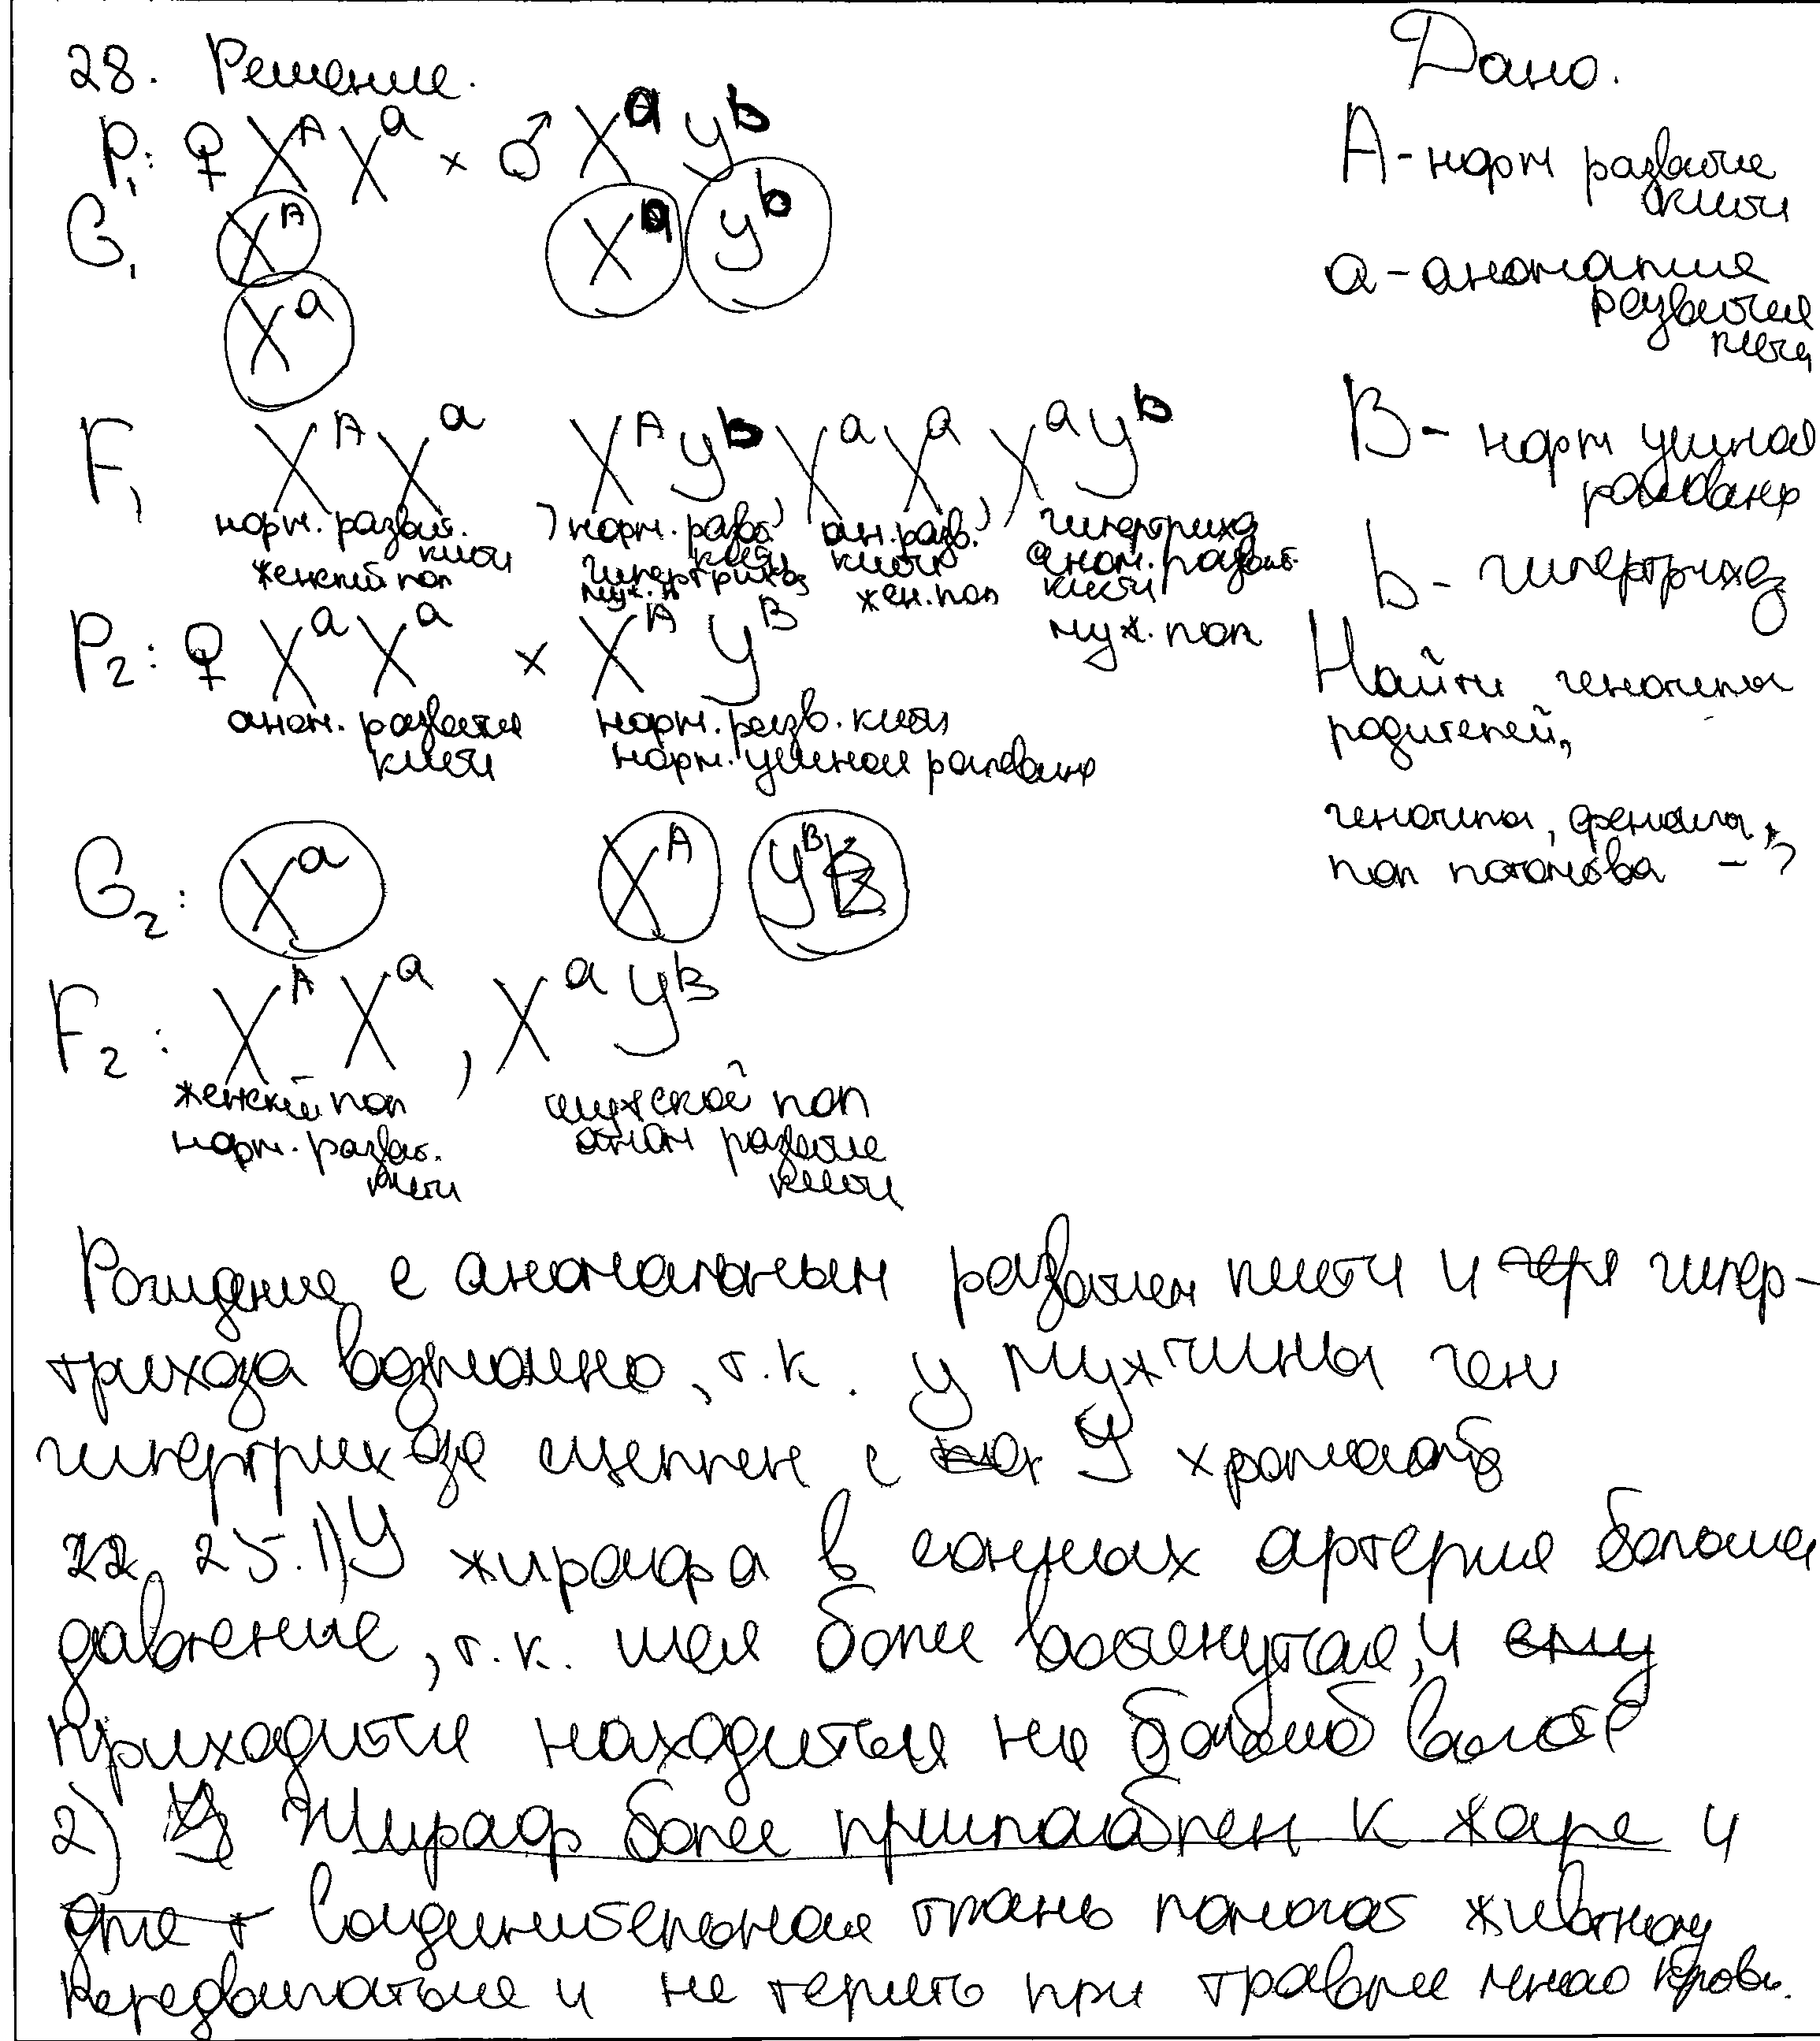 28. Решение.
P₁: ♀ Xᴬ Xᵃ × ♂ Xᵃ Yᵇ
G₁ Xᴬ Xᵃ Yᵇ
Xᵃ
F₁ Xᴬ Xᵃ, Xᴬ Yᵇ, Xᵃ Xᵃ, Xᵃ Yᵇ
норм. развит. кисти женский пол
норм. разв. кисти гипертрихоз муж. п
ан. разв. кисти жен. пол
гипертрихоз аном. развит. кисти муж. пол
P₂: ♀ Xᵃ Xᵃ × Xᴬ Yᴮ
аном. развития кисти
норм. разв. кисти
норм. ушной раковины
G₂: Xᵃ Xᴬ Yᴮ
F₂: Xᴬ Xᵃ, Xᵃ Yᴮ
женский пол
норм. развит. кисти
мужской пол
аном развитие кисти
Дано.
A - норм развитие
кисти
a - аномалия
развития
кисти
B - норм ушной
раковина
b - гипертрихоз
Найти генотипы
родителей,
генотипы, фенотипы,
пол потомства - ?
Рождение с аномальным развитием кисти и гипер-
трихоза возможно, т.к. у мужчины ген
гипертрихоза сцеплен с Y хромосомой
25. 1) У жирафа в сонных артерия больше
давление, т.к. шея более вытянутая, и ему
приходиться находиться на большой высоте
2) Жираф более приспособлен к жаре и
для соединительная ткань помогает животному
передвигаться и не терять при травме много крови.